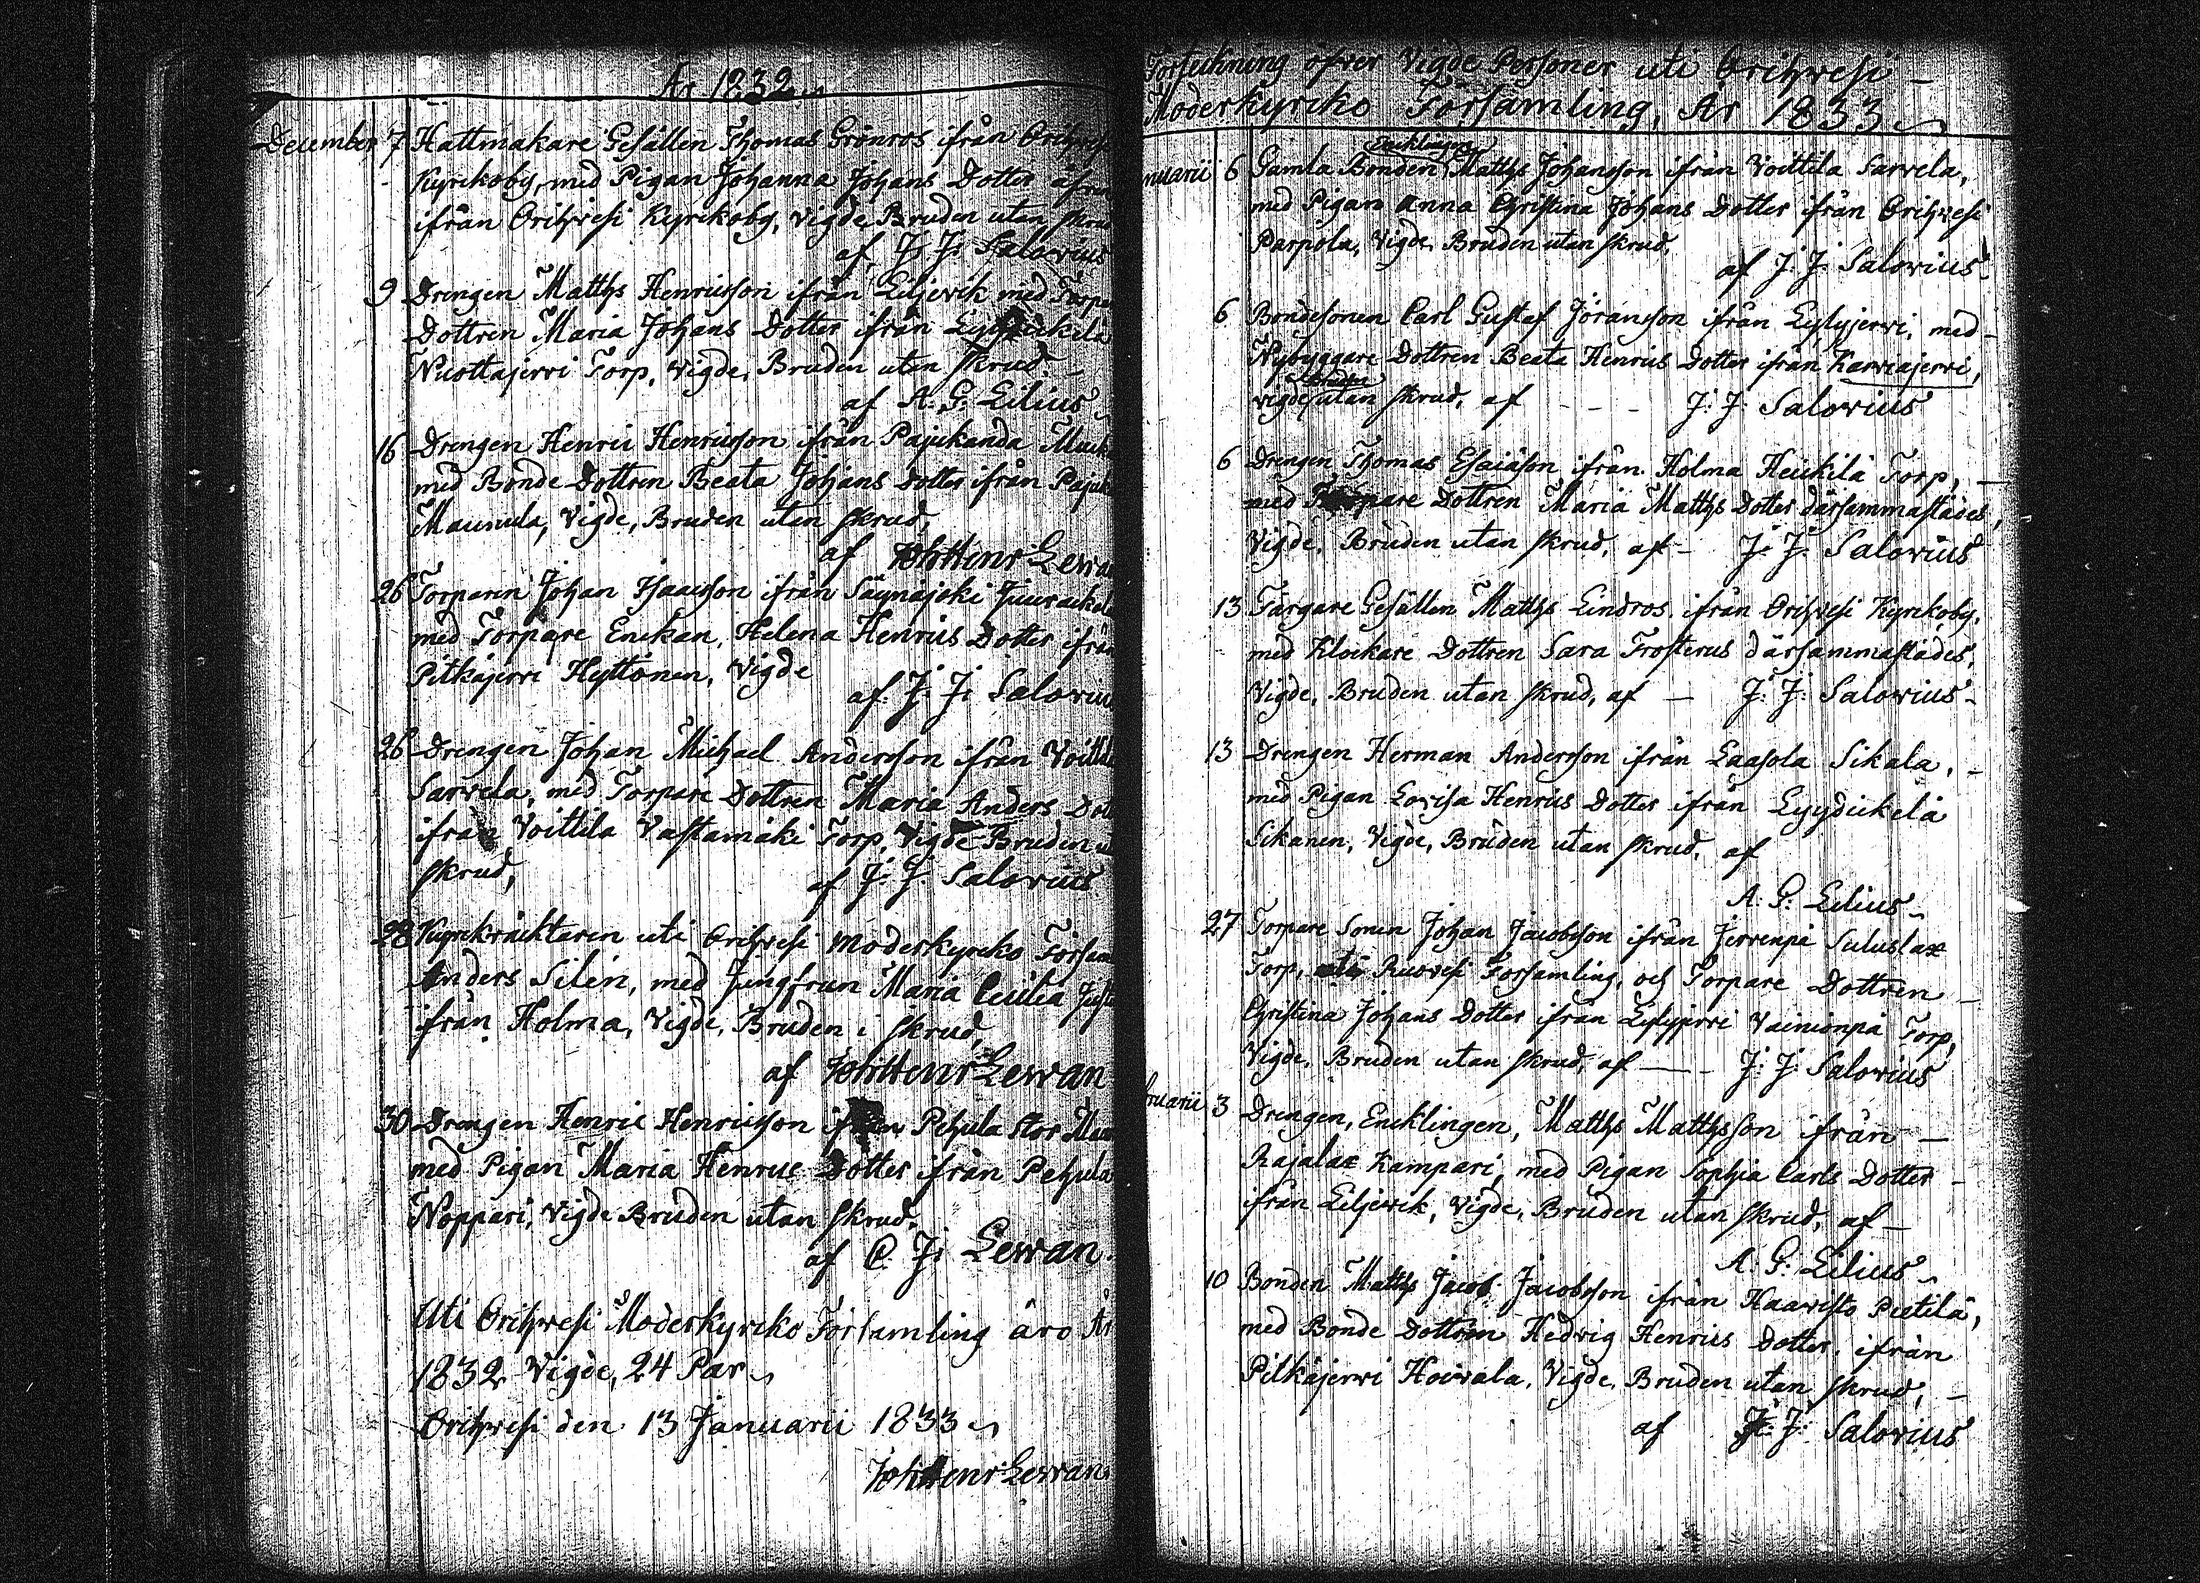 År 1832
December 7 Hattmakare Gesällen Thomas Grönros ifrån
Kyrckoby, med Pigan Johanna Johans Dotter
ifrån Orihvesi Kyrckoby, Vigde Bruden utan
af J. J. Salovius
9 Drengen Matths Henricsson ifrån Liljevik med
Dottren Maria Johans Dotter ifrån
Nuottajervi Torp, Vigde, Bruden utan skrud.
af A. G. Lilius
16 Drengen Henric Henricsson ifrån Pajukanda
med Bonde Dottren Beata Johans Dotter ifrån
Maunula, Vigde, Bruden utan skrud,
af Joh Henr
26 Torparen Johan Isaacsson ifrån Säynäjoki
med Torpare Enckan, Helena Henrics Dotter
Pitkäjervi Hyttönen, Vigde
af J. J.
26 Drengen Johan Michael Andersson ifrån
Sarvela, med Torpare Dottren Maria Anders
ifrån Voittila Vastamäki Torp, Vigde Bruden
skrud,
af J. J. Salovius
28 Kyrckväktaren uti Orihvesi Moderkyrcko
Anders Silén, med Jungfrun Maria Cecilia
ifrån Holma, Vigde, Bruden i skrud,
af Joh Henr Levvan
30 Drengen Henric Henricsson ifrån Pehula Stor
med Pigan Maria Henric Dotter ifrån Pehula
Noppari, Vigde Bruden utan skrud.
af C. J. Levvan.
Uti Orihvesi Moderkyrcko Församling äro År
1832 Vigde, 24 Par
Orihvesi den 13 Januarii 1833
Joh Henr Levvan
Förteckning öfver Vigde Personer uti Orihvesi
Moderkyrcko Församling, År 1833
Encklingen
nuarii 6 Gamla Bonden Matths Johansson ifrån Voittila Sarvela,
med Pigan Anna Christina Johans Dotter ifrån Orihvesi
Parpola, Vigde, Bruden utan skrud,
af J. J. Salovius
6 Bondesonen Carl Gustaf Göransson ifrån Lylyjervi, med
Nybyggare Dottren Beata Henrics Dotter ifrån Karviajervi,
Bruden
Vigde, utan skrud, af - - - J. J. Salovius
6 Drengen Thomas Esaiäson ifrån Holma Heickilä Torp,
med Torpare Dottren Maria Matths Dotter därsammastädes,
Vigde, Bruden utan skrud, af - J. J. Salovius
13 Färgare Gesällen Matths Lindros ifrån Orihvesi Kyrckoby,
med Klockare Dottren Sara Frosterus därsammastädes,
Vigde, Bruden utan skrud, af - J. J. Salovius -
13 Drengen Herman Andersson ifrån Laasola Sikala, -
med Pigan Lovisa Henrics Dotter ifrån Lyydickelä
Sikanen, Vigde, Bruden utan skrud, af
A. G. Lilius
27 Torpare Sonen Johan Jacobsson ifrån Jervenpä
Torp, uti Ruovesi Församling, och Torpare Dottren -
Christina Johans Dotter ifrån Lylyjervi Vainionpä Torp,
Vigde, Bruden utan skrud, af - - J. J. Salovius
bruarii 3 Drengen, Encklingen, Matths Matthsson ifrån -
Rajalax Kampari, med Pigan Sophia Carls Dotter -
ifrån Liljevik, Vigde, Bruden utan skrud, af -
A. G. Lilius
10 Bonden Matths Jacob Jacobsson ifrån Haavisto Piétilä,
med Bonde Dottren Hedvig Henrics Dotter ifrån
Pitkäjervi Hoivala, Vigde, Bruden utan skrud, -
af J. J. Salovius